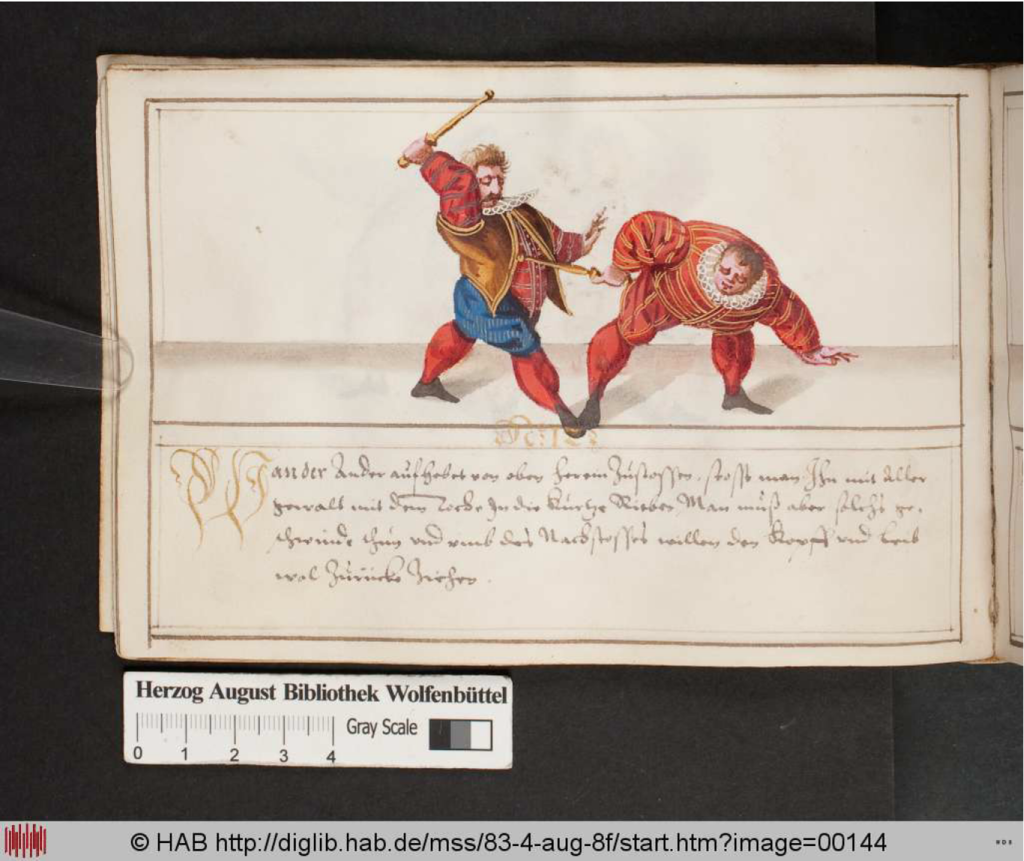 Wan der Ander auffhebet von oben herein Zustossen, stosst man Ihn mit Aller
gewalt mit dem Tocke In die Kurtze Rieben Man muß aber solchs ge,
schwinde thun und umb des Nachstosses willen den Kopff und Leib
wol Zurücke Ziehen.
Herzog August Bibliothek Wolfenbüttel
Gray Scale
0 1 2 3 4
© HAB http://diglib.hab.de/mss/83-4-aug-8f/start.htm?image=00144